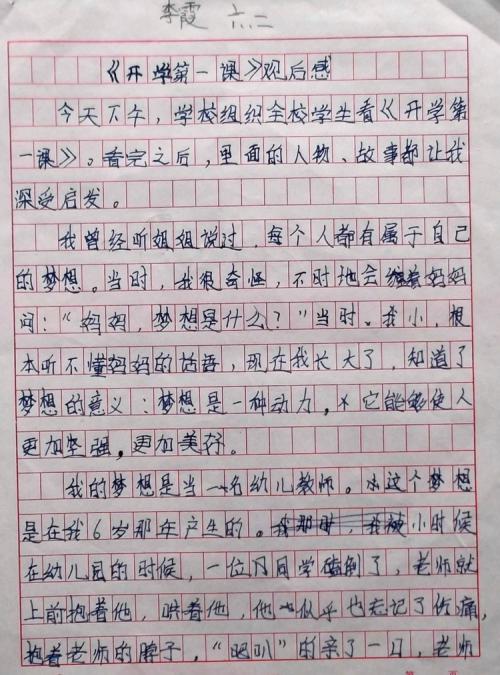 李霞 六.二
《开学第一课》观后感
今天下午,学校组织全校学生看《开学第
一课》。看完之后,里面的人物、故事都让我
深受启发。
我曾经听姐姐说过,每个人都有属于自己
的梦想。当时,我很奇怪,不时地会缠着妈妈
问:“妈妈,梦想是什么?”当时。我小,根
本听不懂妈妈的话语,现在我长大了,知道了
梦想的意义:梦想是一种动力。它能够使人
更加坚强。更加美好。
我的梦想是当一名幼儿教师。这个梦想
是在我6岁那年产生的。小时候
在幼儿园的时候,一位同学碰倒了,老师就
上前抱着他,哄着他,他似乎也忘记了伤痛,
抱着老师的脖子,“吧叽”的亲了一口,老师
第 页